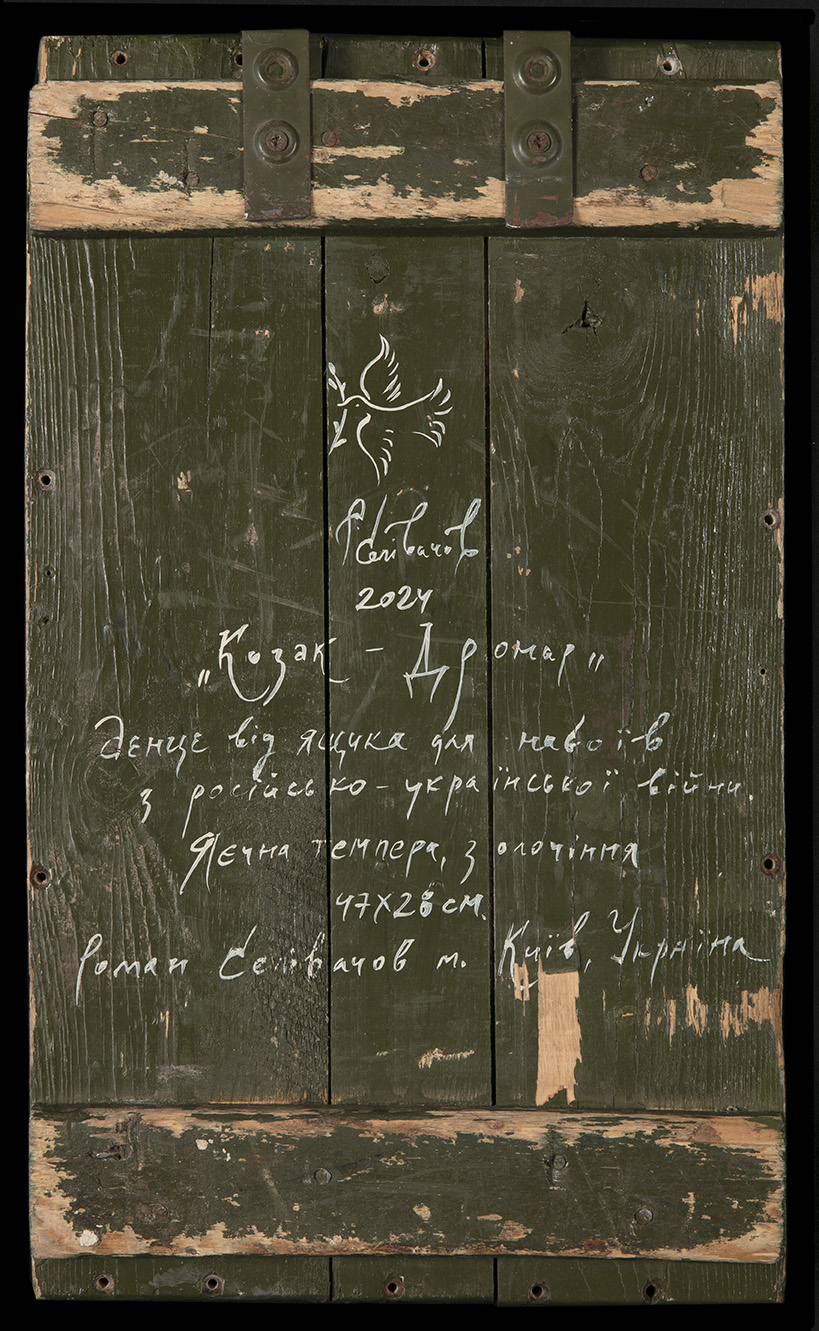 Р Селівачов
2024
„Козак - Дромар"
Денце від ящика для набоїв
з російсько-української війни.
Яєчна темпера, золочіння
47х28 см.
Роман Селівачов м. Київ, Україна